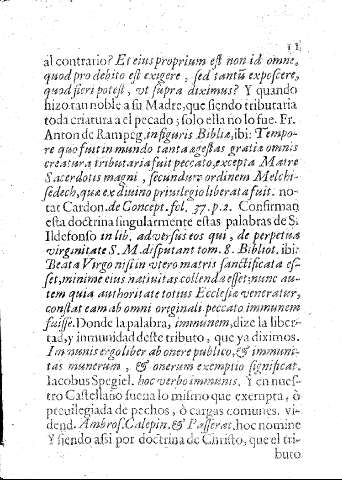 11
al contrario? Et eius proprium est non id omne,
quod pro debito est exigere, sed tantũ expescere,
quod fieri potest, vt supra diximus? Y quando
hizo tan noble a su Madre, que siendo tributaria
toda criatura a el pecado; solo ella no lo fue. Fr.
Anton de Rampeg. in figuris Bibliæ, ibi: Tempo-
re quo fuit in mundo tanta ægestas gratiæ omnis
creatura tributaria fuit peccato, excepta Matre
Sacerdotis magni, secundum ordinem Melchi-
sedech, quæ ex divino priuilegio liberata fuit. no-
tat Cardon. de Concept. fol. 37. p. 2. Confirman
esta doctrina singularmente estas palabras de S.
Ildefonso in lib. adversus eos qui, de perpetua
virginitate S. M. disputant tom. 8. Bibliot. ibi:
Beata Virgo nisi in vtero matris sanctificata es-
set, minime eius natiuitas collenda esset; nunc au-
tem quia authoritate totius Ecclesiæ veneratur,
constat eam ab omni originali peccato immunem
fuisse. Donde la palabra, immunem, dize la liber-
tad, y inmunidad deste tributo, que ya diximos.
Immunis ergo liber ab onere publico, & immuni-
tas munerum, & onerum exemptio significat.
Iacobus Spegiel. hoc verbo immunis. Y en nues-
tro Castellano suena lo mismo que exempta, ò
previlegiada de pechos, ò cargas comunes. vi-
dend. Ambros. Calepin. & Passerat. hoc nomine
Y siendo assi por doctrina de Christo, que el tri-
buto